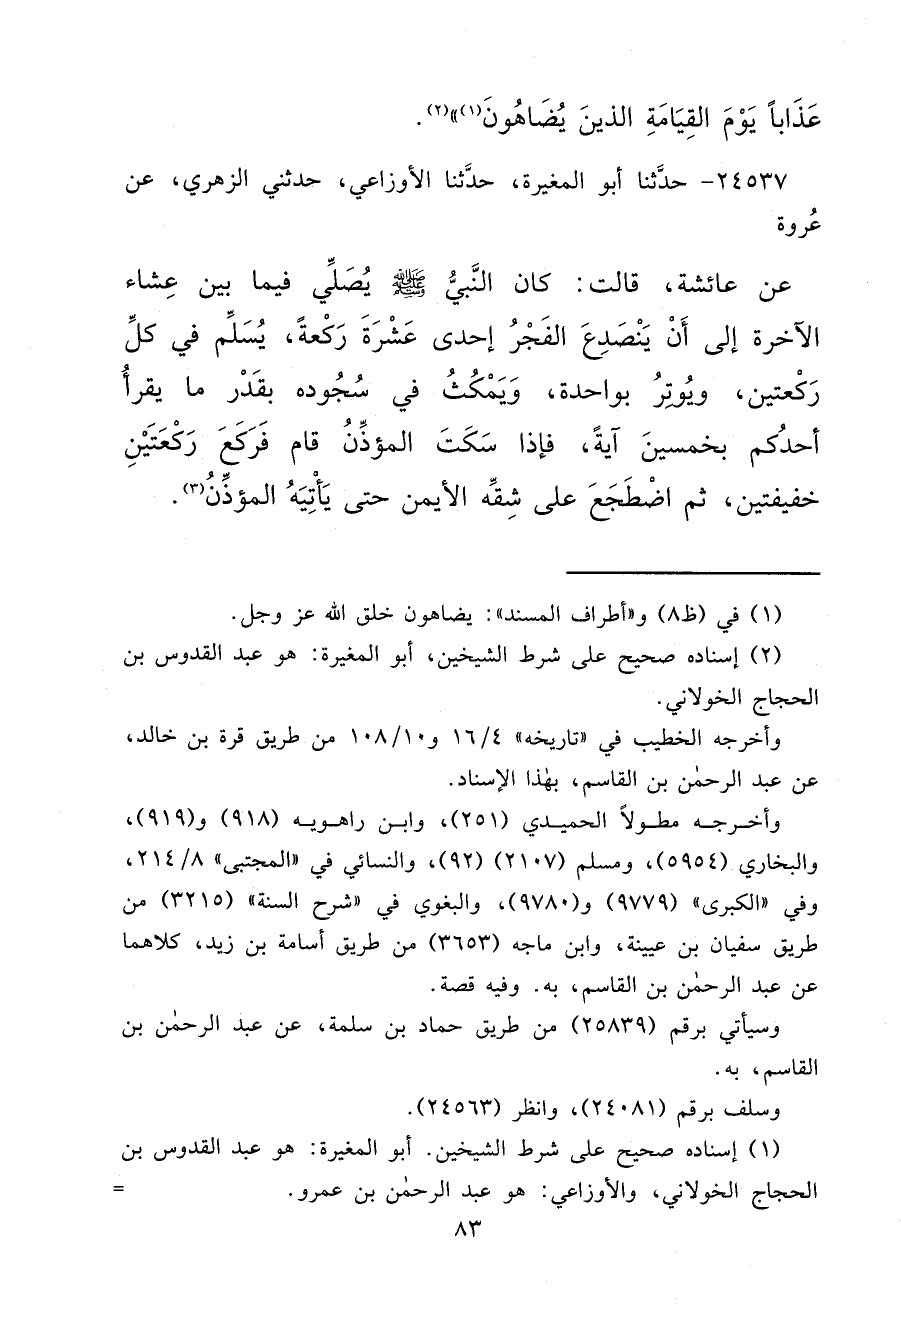 عَذَاباً يَوْمَ القِيَامَةِ الذينَ يُضَاهُونَ(١)»(٢).
٢٤٥٣٧- حدَّثنا أبو المغيرة، حدَّثنا الأوزاعي، حدثني الزهري، عن
عُروة
عن عائشة، قالت: كان النَّبيُّ ﷺ يُصَلِّي فيما بين عِشاء
الآخرة إلى أَنْ يَنْصَدِعَ الفَجْرُ إحدى عَشْرَةَ رَكْعةً، يُسَلِّم في كلِّ
رَكْعتين، ويُوتِرُ بواحدة، وَيَمْكُثُ في سُجُوده بقَدْر ما يقرأُ
أحدُكم بخمسينَ آيةً، فإذا سَكَتَ المؤذِّنُ قام فَرَكَعَ رَكْعَتَيْنِ
خفيفتين، ثم اضْطَجَعَ على شِقِّه الأيمن حتى يَأْتِيَهُ المؤذِّنُ(٣).
(١) في (ظ٨) و«أطراف المسند»: يضاهون خلق الله عز وجل.
(٢) إسناده صحيح على شرط الشيخين، أبو المغيرة: هو عبد القدوس بن
الحجاج الخولاني.
وأخرجه الخطيب في «تاريخه» ١٦/٤ و١٠٨/١٠ من طريق قرة بن خالد،
عن عبد الرحمٰن بن القاسم، بهٰذا الإسناد.
وأخرجه مطولاً الحميدي (٢٥١)، وابن راهويه (٩١٨) و(٩١٩)،
والبخاري (٥٩٥٤)، ومسلم (٢١٠٧) (٩٢)، والنسائي في «المجتبى» ٢١٤/٨،
وفي «الكبرى» (٩٧٧٩) و(٩٧٨٠)، والبغوي في «شرح السنة» (٣٢١٥) من
طريق سفيان بن عيينة، وابن ماجه (٣٦٥٣) من طريق أسامة بن زيد، كلاهما
عن عبد الرحمٰن بن القاسم، به. وفيه قصة.
وسيأتي برقم (٢٥٨٣٩) من طريق حماد بن سلمة، عن عبد الرحمٰن بن
القاسم، به.
وسلف برقم (٢٤٠٨١)، وانظر (٢٤٥٦٣).
(١) إسناده صحيح على شرط الشيخين. أبو المغيرة: هو عبد القدوس بن
الحجاج الخولاني، والأوزاعي: هو عبد الرحمٰن بن عمرو. =
٨٣